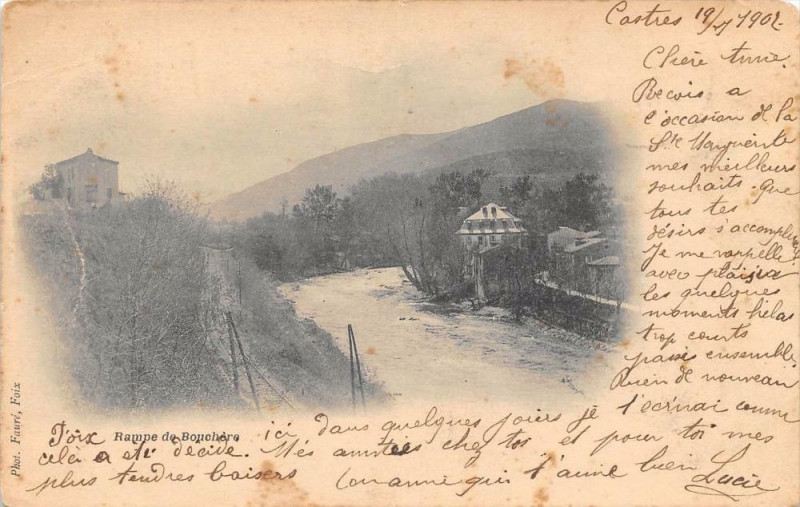 Castres 19/7 1902
Chère amie.
Reçois a
l'occasion de la
Ste Marguerite
mes meilleurs
souhaits. que
tous tes
désirs s'accomplissent
Je me rappelle
avec plaisir
les quelques
moments hélas
trop courts
passés ensemble
Rien de nouveau
ici dans quelques jours je t'écrirai comme
cela a été décidé. Mes amitiés chez toi et pour toi mes
plus tendres baisers
qui t'aime bien Lucie
Foix
Rampe de Bouchère
Phot. Fauré, Foix